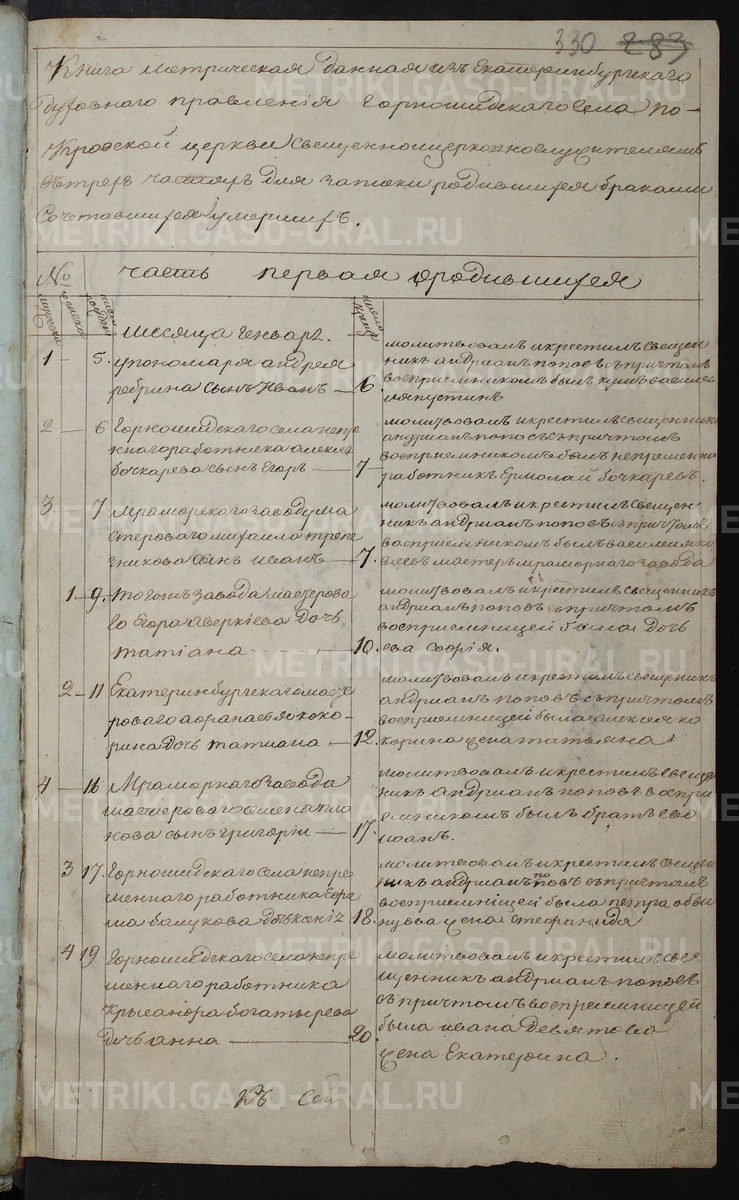 330 283
Книга метрическая данная изъ Екатеринбургскаго
духовнаго правленія Горнощидскаго села По-
кровской церкви священноицерковнослужителямъ
въ трехъ частяхъ для записки родившихся бракомъ
сочетавшихся умершихъ.
№ часть первая о родившихся
месяца генваря.
1 — 5. упономаря андрея
ребрина сынъ Иванъ — 6.
молитвовалъ и крестилъ священ
никъ андрианъ поповъ съ причтомъ
восприемникомъ былъ
2 — 6 Горнощидскаго села непре
меннаго работника алексея
бочкарева сынъ Егоръ — 7
молитвовалъ и крестилъ священникъ
андрианъ поповъ съ причтомъ
восприемникомъ былъ непременны
работникъ Ермолай бочкаревъ.
3 7 Мраморскаго завода ма
стероваго михаила трапе
зникова сынъ иванъ — 7.
молитвовалъ и крестилъ священ
никъ андрианъ поповъ съ причтомъ
восприемникомъ былъ
мастеръ мраморнаго завода
1 — 9. тогожъ завода мастерова
го Егора аверкіева дочь
татіана — 10.
молитвовалъ и крестилъ священникъ
андрианъ поповъ съ причтомъ
восприемницей была дочь
ева софія.
2 — 11 Екатеринбургскаго масте
роваго афанасья коко-
рина дочь татиана — 12.
молитвовалъ и крестилъ священникъ
андрианъ поповъ съ причтомъ
восприемницей была алексея ко
корина жена татьяна
4 — 16 Мраморнаго завода
мастероваго семена
нова сынъ григории — 17.
молитвовалъ и крестилъ свеще
никъ андрианъ поповъ воспри
емникомъ былъ братъ ево
иоанъ.
3 17. Горнощидскаго села непре
меннаго работника
ма балукова дочь ксенія 18.
молитвовалъ и крестилъ свещен
никъ андрианъ поповъ съ причтомъ
восприемницей была петра
цова жена стефанида
4 19 Горнощидскаго села непре
меннаго работника
Крысанфа богатырева
дочь анна — 20.
молитвовалъ и крестилъ свя
щенникъ андрианъ поповъ
съ причтомъ восприемницей
была ивана девятова
жена Екатерина.
къ сей
METRIKI.GASO-URAL.RU